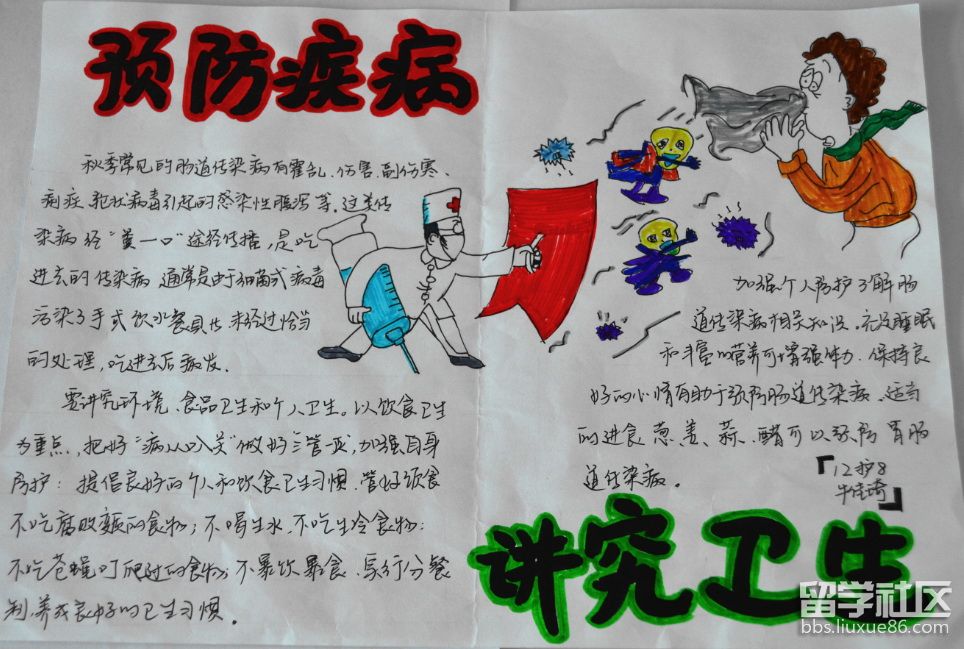 预防疾病
秋季常见的肠道传染病有霍乱、伤害、副伤寒、
痢疾、轮状病毒引起的感染性腹泻等。这类传
染病经“粪一口”途经传播，是吃
进去的传染病 通常是由于细菌或病毒
污染了手或饮水餐具 未经过恰当
的处理，吃进去后病发。
要讲究环境、食品卫生和个人卫生。以饮食卫生
为重点，把好“病从口入关”做好三管一灭，加强自身
防护：提倡良好的个人和饮食卫生习惯，管好饮食
不吃腐败变质的食物；不喝生水，不吃生冷食物；
不吃苍蝇叮爬过的食物；不暴饮暴食、实行分餐
制，养成良好的卫生习惯。
加强个人防护了解肠
道传染病相关知识。充足睡眠
和丰富的营养可增强体力，保持良
好的心情有助于预防肠道传染病。适当
的进食葱、姜、蒜、醋可以预防胃肠
道传染病。
「12护8
牛佳琦」
讲究卫生
留学社区
bbs.liuxue86.com